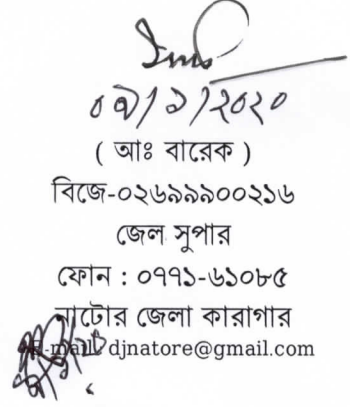 ( আঃ বারেক )
বিজে-০২৬৯৯৯০০২১৬
জেল সুপার
ফোন : ০৭৭১-৬১০৮৫
নাটোর জেলা কারাগার
E-mail: djnatore@gmail.com